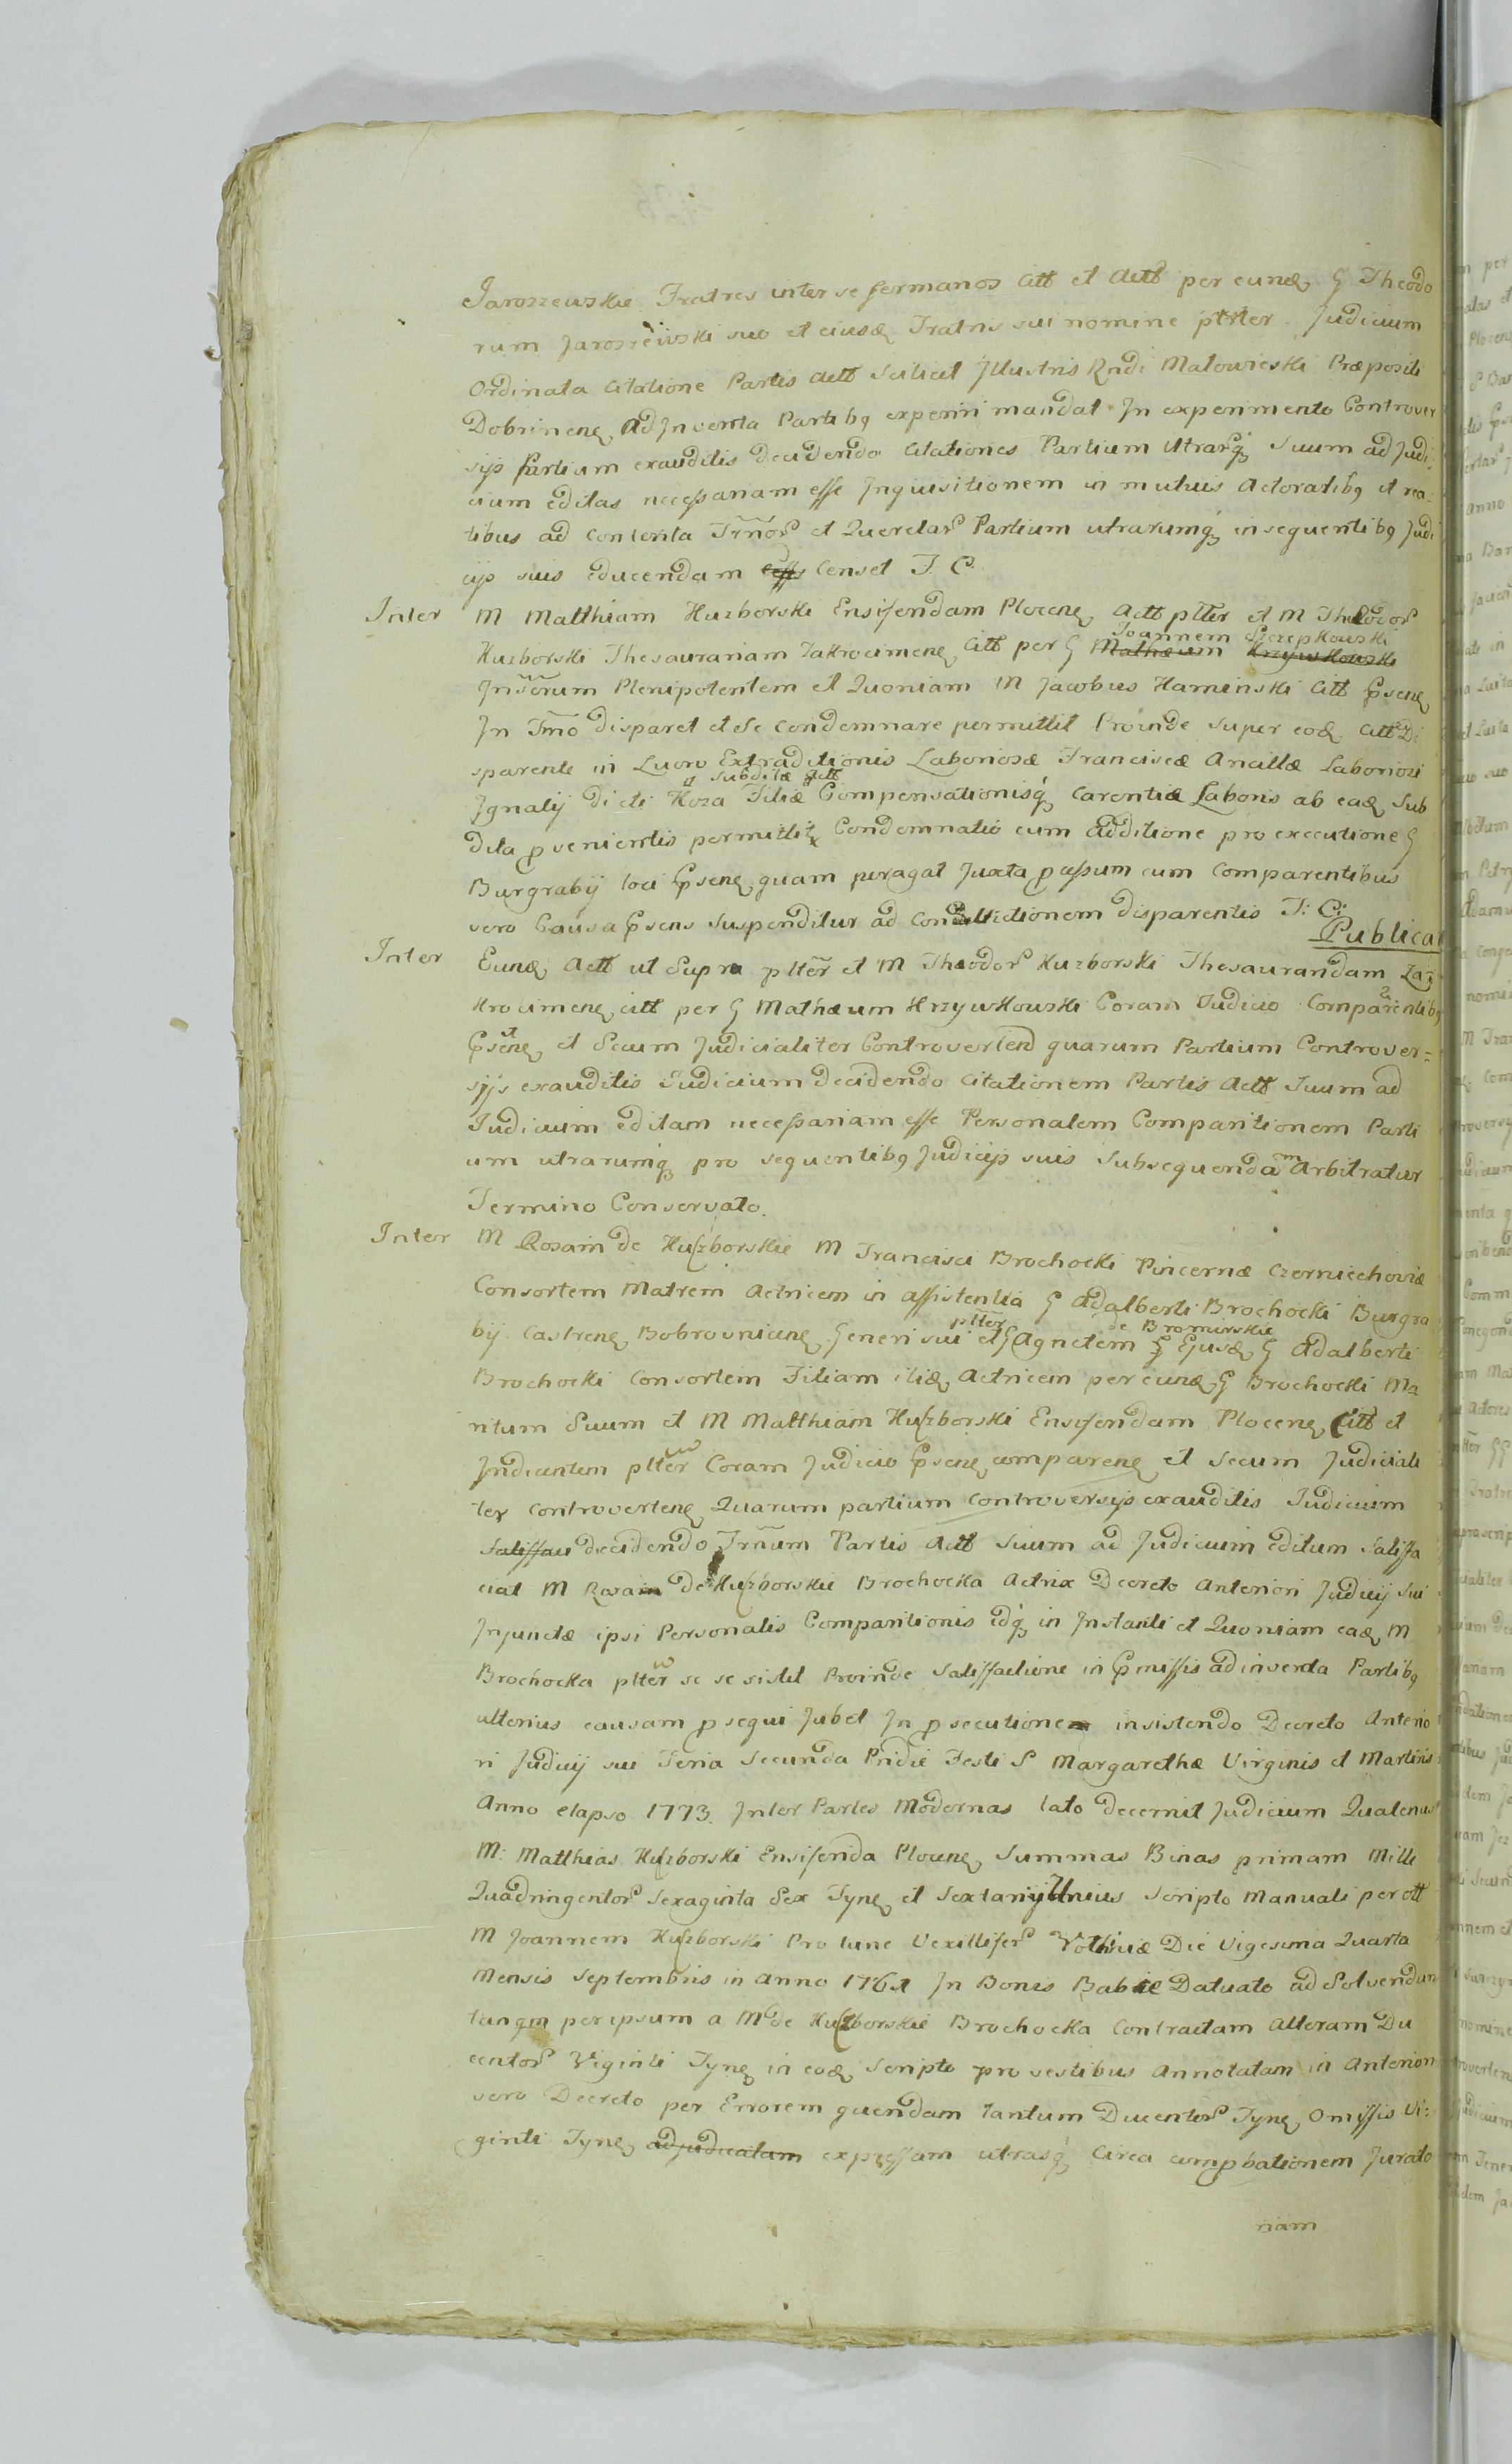 Jaroszewskie Fratres inter se germanos Citt et Actt per eund G Theodo
rum Jaroszewski suo et eiusd Fratris sui nomine ptrter Judicium
Ordinata Citatione Partis Actt Scilicet Jllustris Rndi Małowieski Præpositi
Dobrinens Adjnventa Partibq experiri mandat Jn experimento Controver
sijs Partium exauditis decidendo Citationes Partium Utrarq Suum ad Judi
cium Editas necessariam esse Jnquisitionem in mutuis Actoratibq et rea
tibus ad Contenta Trnor et Querelar Partium utrarumq in sequentibq Judi
cijs suis educendam Censet T. C.
Inter M Matthiam Huzborski Ensiferidam Plocens Actt pltter et M Theodor
Joannem Szczepkowski
Huzborski Thesaurariam Zakrocimens Citt per G Mathæum Krzywkowski
Jnserum Plenipotentem et Quoniam M Jacobus Kaminski Citt Psens
Jn Tmo disparet et Se Condemnare permittit Proinde Super eod Citt Di
sparente in Lucro Extraditionis Laboriosæ Franciscæ Ancillæ Laboriosi
Subditæ Actt
Jgnatij dicti Koza Filiæ Compensationisq Carentiæ Laboris ab ead Sub
dita pvenientis permittit Condemnatio cum Additione pro executione G
Burgrabij loci Psens quam peragat Juxta pcessum cum Comparentibus
vero Causa Psens Suspenditur ad Convictionem disparentis T: C:
Publicat
Inter Eund Actt ut Supra pltter et M Theodor Huzborski Thesauraridam Za
krocimens citt per G Mathæum Krzywkowski Coram Judicio Comparentibq
Psens et Secum Judicialiter Controvertend quarum Partium Controver=
sijs exauditis Judicium decidendo Citationem Partis Actt Suum ad
Judicium editam necessariam esse Personalem Comparitionem Parti
um utrarumq pro sequentibq Judicijs suis Subsequendam Arbitratur
Termino Conservato.
Inter M Rosam de Huzborskie M Francisci Brochocki Pincernæ Czerniechoviæ
Consortem Matrem Actricem in assistentia G Adalberti Brochocki Burgra
pltter de Bromirskie
bij Castrens Bobrovnicens Generi sui et G Agnetem Ejusd G Adalberti
Brochocki Consortem Filiam itid Actricem per eund G Brochocki Ma
ritum Suum et M Matthiam Huzborski Ensiferidam Plocens Citt et
Jndicantem pltter Coram Judicio Psens comparens et Secum Judiciali
ter Controvertens Quarum partium Controversijs exauditis Judicium
Satisfaci decidendo Trnum Partis Actt Suum ad Judicium Editum Satisfa
ciat M Rosam de Huzborskie Brochocka Actrix Decreto Anteriori Judicij Sui
Jnjunctæ ipsi Personalis Comparitionis idq in Jnstanti et Quoniam ead M
Brochocka pltter se se sistit Proinde Satisfactione in Pmissis adinventa Partibq
ulterius causam psequi Jubet Jn psecutione insistendo Decreto Anterio
ri Judicij sui Feria Secunda Pridie Festi S Margarethæ Virginis et Martiris
Anno elapso 1773. Jnter Partes Modernas lato decernit Judicium Quatenus
M: Matthias Huzborski Ensiferida Plocens Summas Binas primam Mille
Quadringentor Sexaginta Sex Tyns et Sextarij Unius Scripto Manuali per ott
M Joannem Huzborski Pro tunc Vexillifer Die Vigesima Quarta
Mensis Septembris in Anno 1761 Jn Bonis Babie Datuato ad Solvendum
tanqm per ipsum a M de Huzborskie Brochocka Contractam Alteram Du
centor Viginti Tyns in eod Scripto pro vestibus Annotatam in Anteriori
vero Decreto per Errorem quendam tantum Ducentor Tyns Omissis Vi:
ginti Tyns adjudicatam expressam utrasq Circa compbationem Jurato
riam